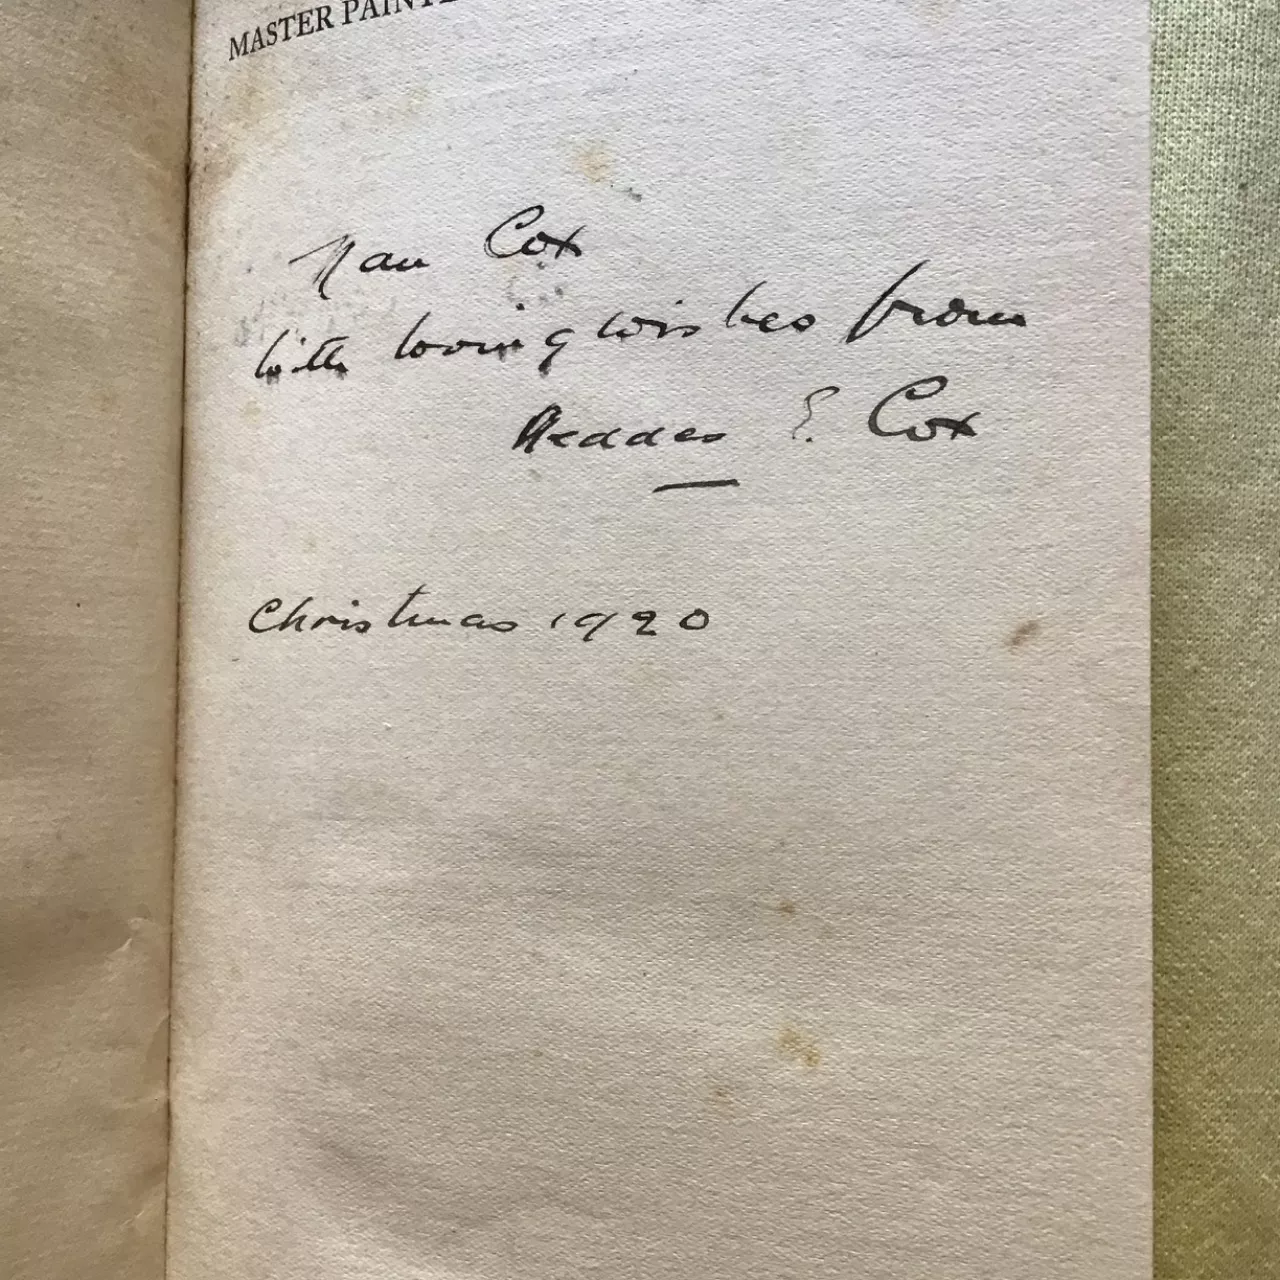 MASTER PAINTE
Nan Cox
with loving wishes from
E. Cox
Christmas 1920